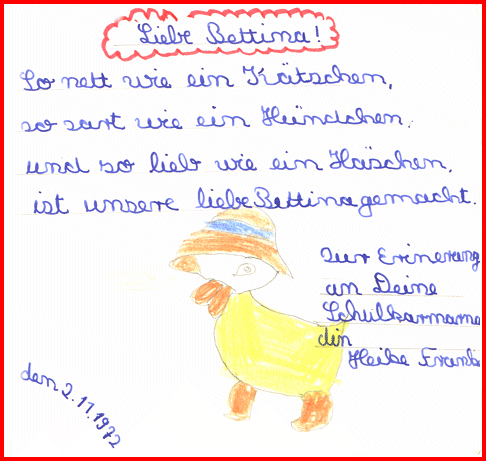 Liebe Bettina!
So nett wie ein Kätschen,
so sart wie ein Hündchen,
und so lieb wie ein Häschen,
ist unsere liebe Bettina gemacht.
Zur Erinerung
an Deine
din
Heike Frank
den 2.11.1972